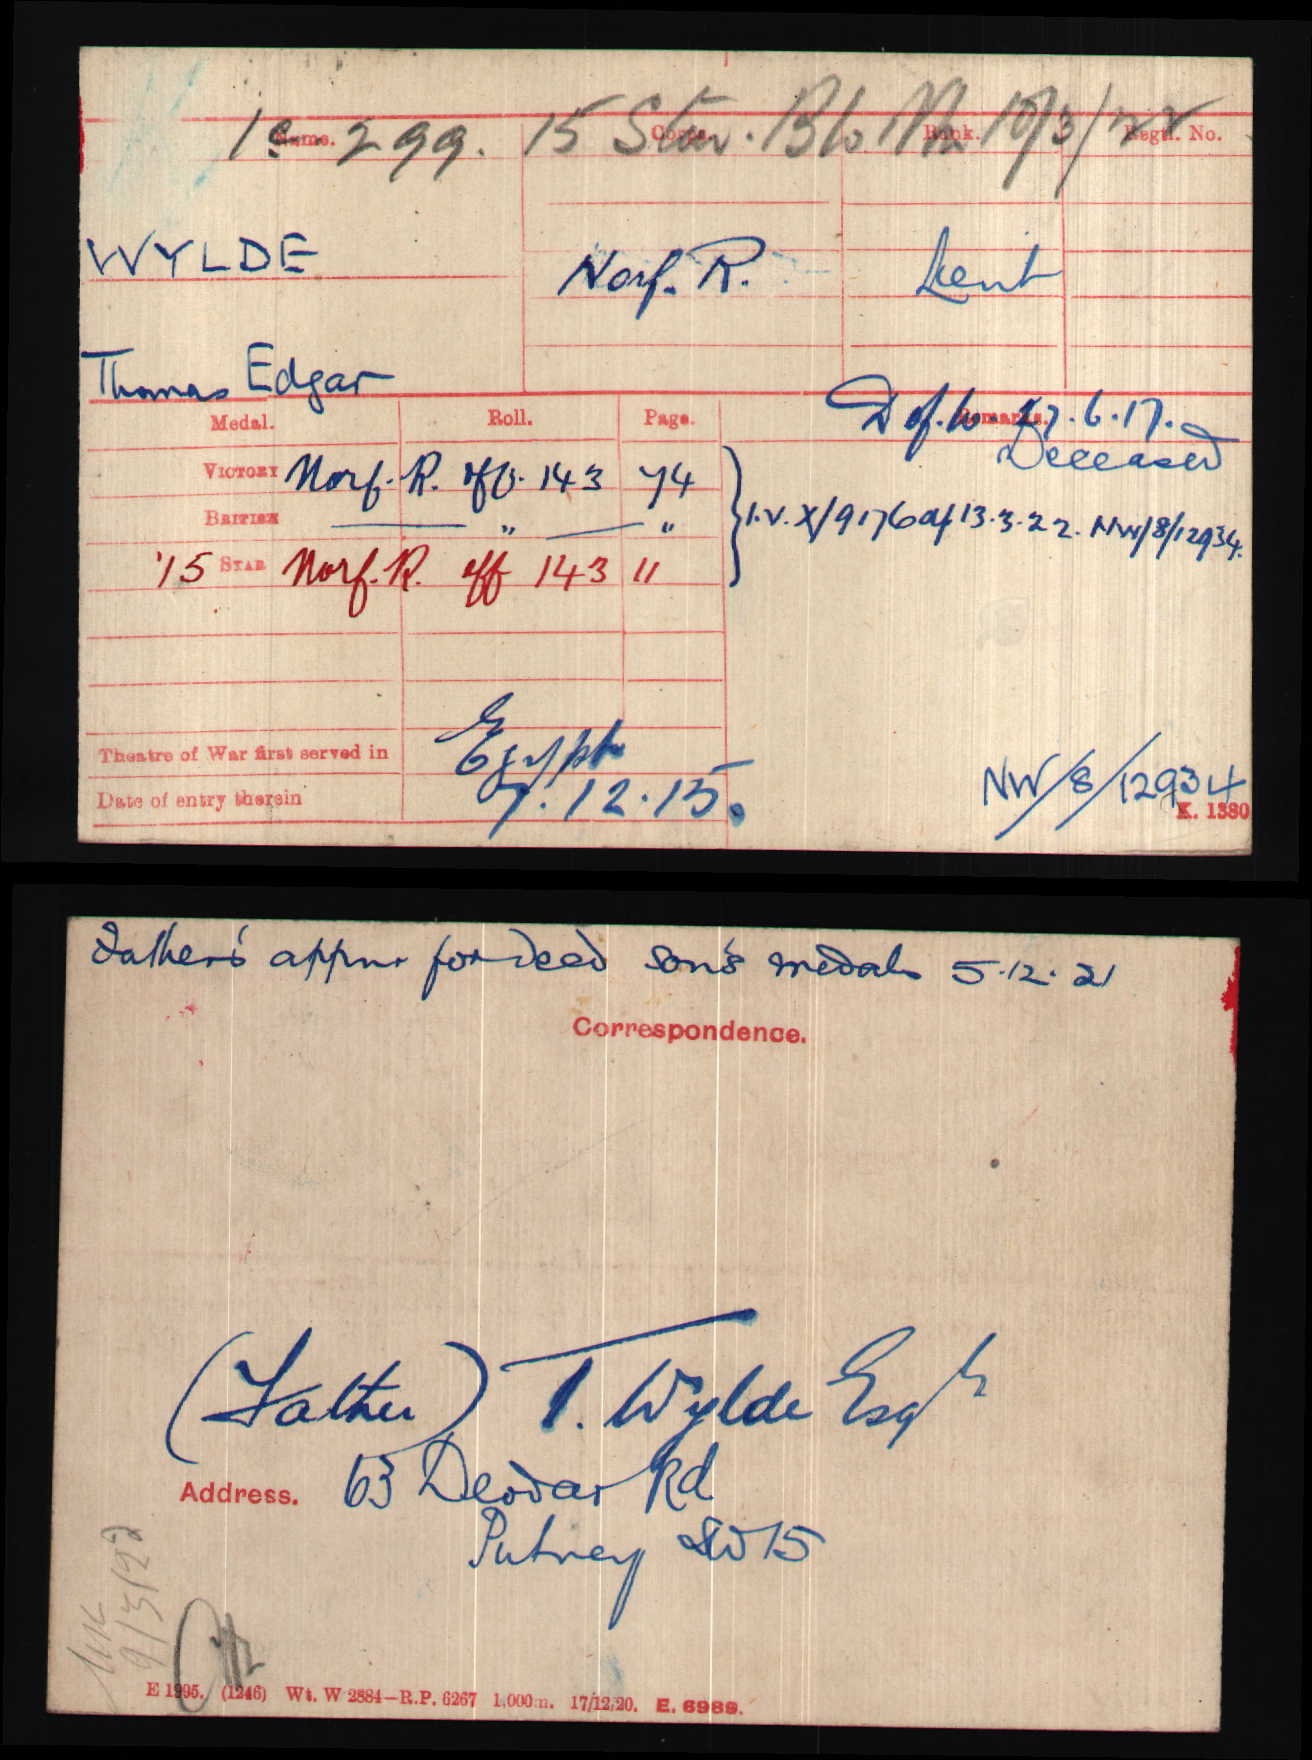 299. 15 Star. 10/3/22
Name. Corps. Rank. Regtl. No.
WYLDE Norf. R. Lieut
Thomas Edgar
Medal. Roll. Page. Remarks.
D of W 27.6.17.
Deceased
VICTORY Norf. R. off. 143 74
BRITISH — " — "
'15 STAR Norf. R. off 143 11
I.V. X/9176 of 13.3.22. NW/8/12934.
Theatre of War first served in Egypt
Date of entry therein 7.12.15.
NW/8/12934
K. 1380
Father's appn for decd son's medals 5.12.21
Correspondence.
(Father) T. Wylde Esqr
Address. 63 Deodar Rd
Putney SW15
9/3/22
E 1995. (1246) Wt. W 2884—R.P. 6267 1,000m. 17/12/20. E. 6989.